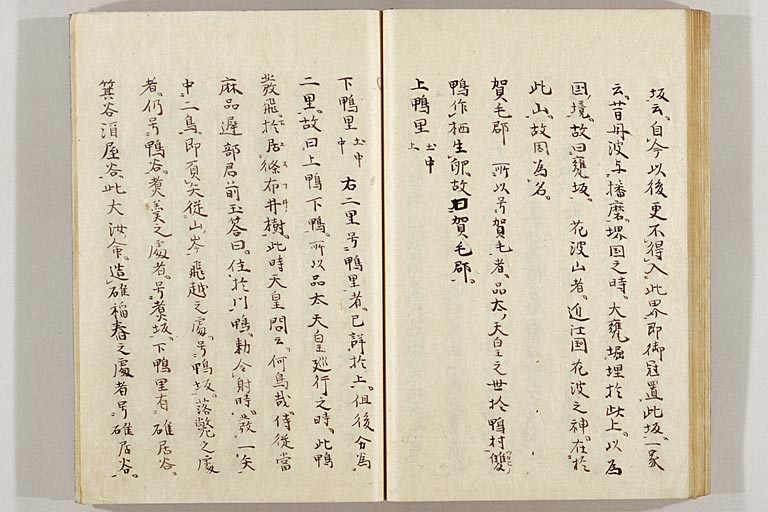 坂云自今以後更不得入此界即御冠置此坂一家
云昔丹波与播磨堺国之時大甕堀埋於此上以為
国境故曰甕坂　花波山者近江国花波之神在於
此山故因為名
賀毛郡　所以号賀毛者品太天皇之世於鴨村雙
鴨作栖生卵故曰賀毛郡
上鴨里 土中上
下鴨里 土中中　右二里号鴨里者已詳於上但後分為
二里故曰上鴨下鴨所以品太天皇巡行之時此鴨
発飛於居條布井樹此時天皇問云何鳥哉侍従当
麻品遅部君前玉答曰住於川鴨勅令射時発一矢
中二鳥即負矢従山岑飛越之處号鴨坂落斃之處
者仍号鴨谷煮羹之處者号煮坂下鴨里有碓居谷
箕谷酒屋谷此大汝命造碓稲舂之處者号碓居谷